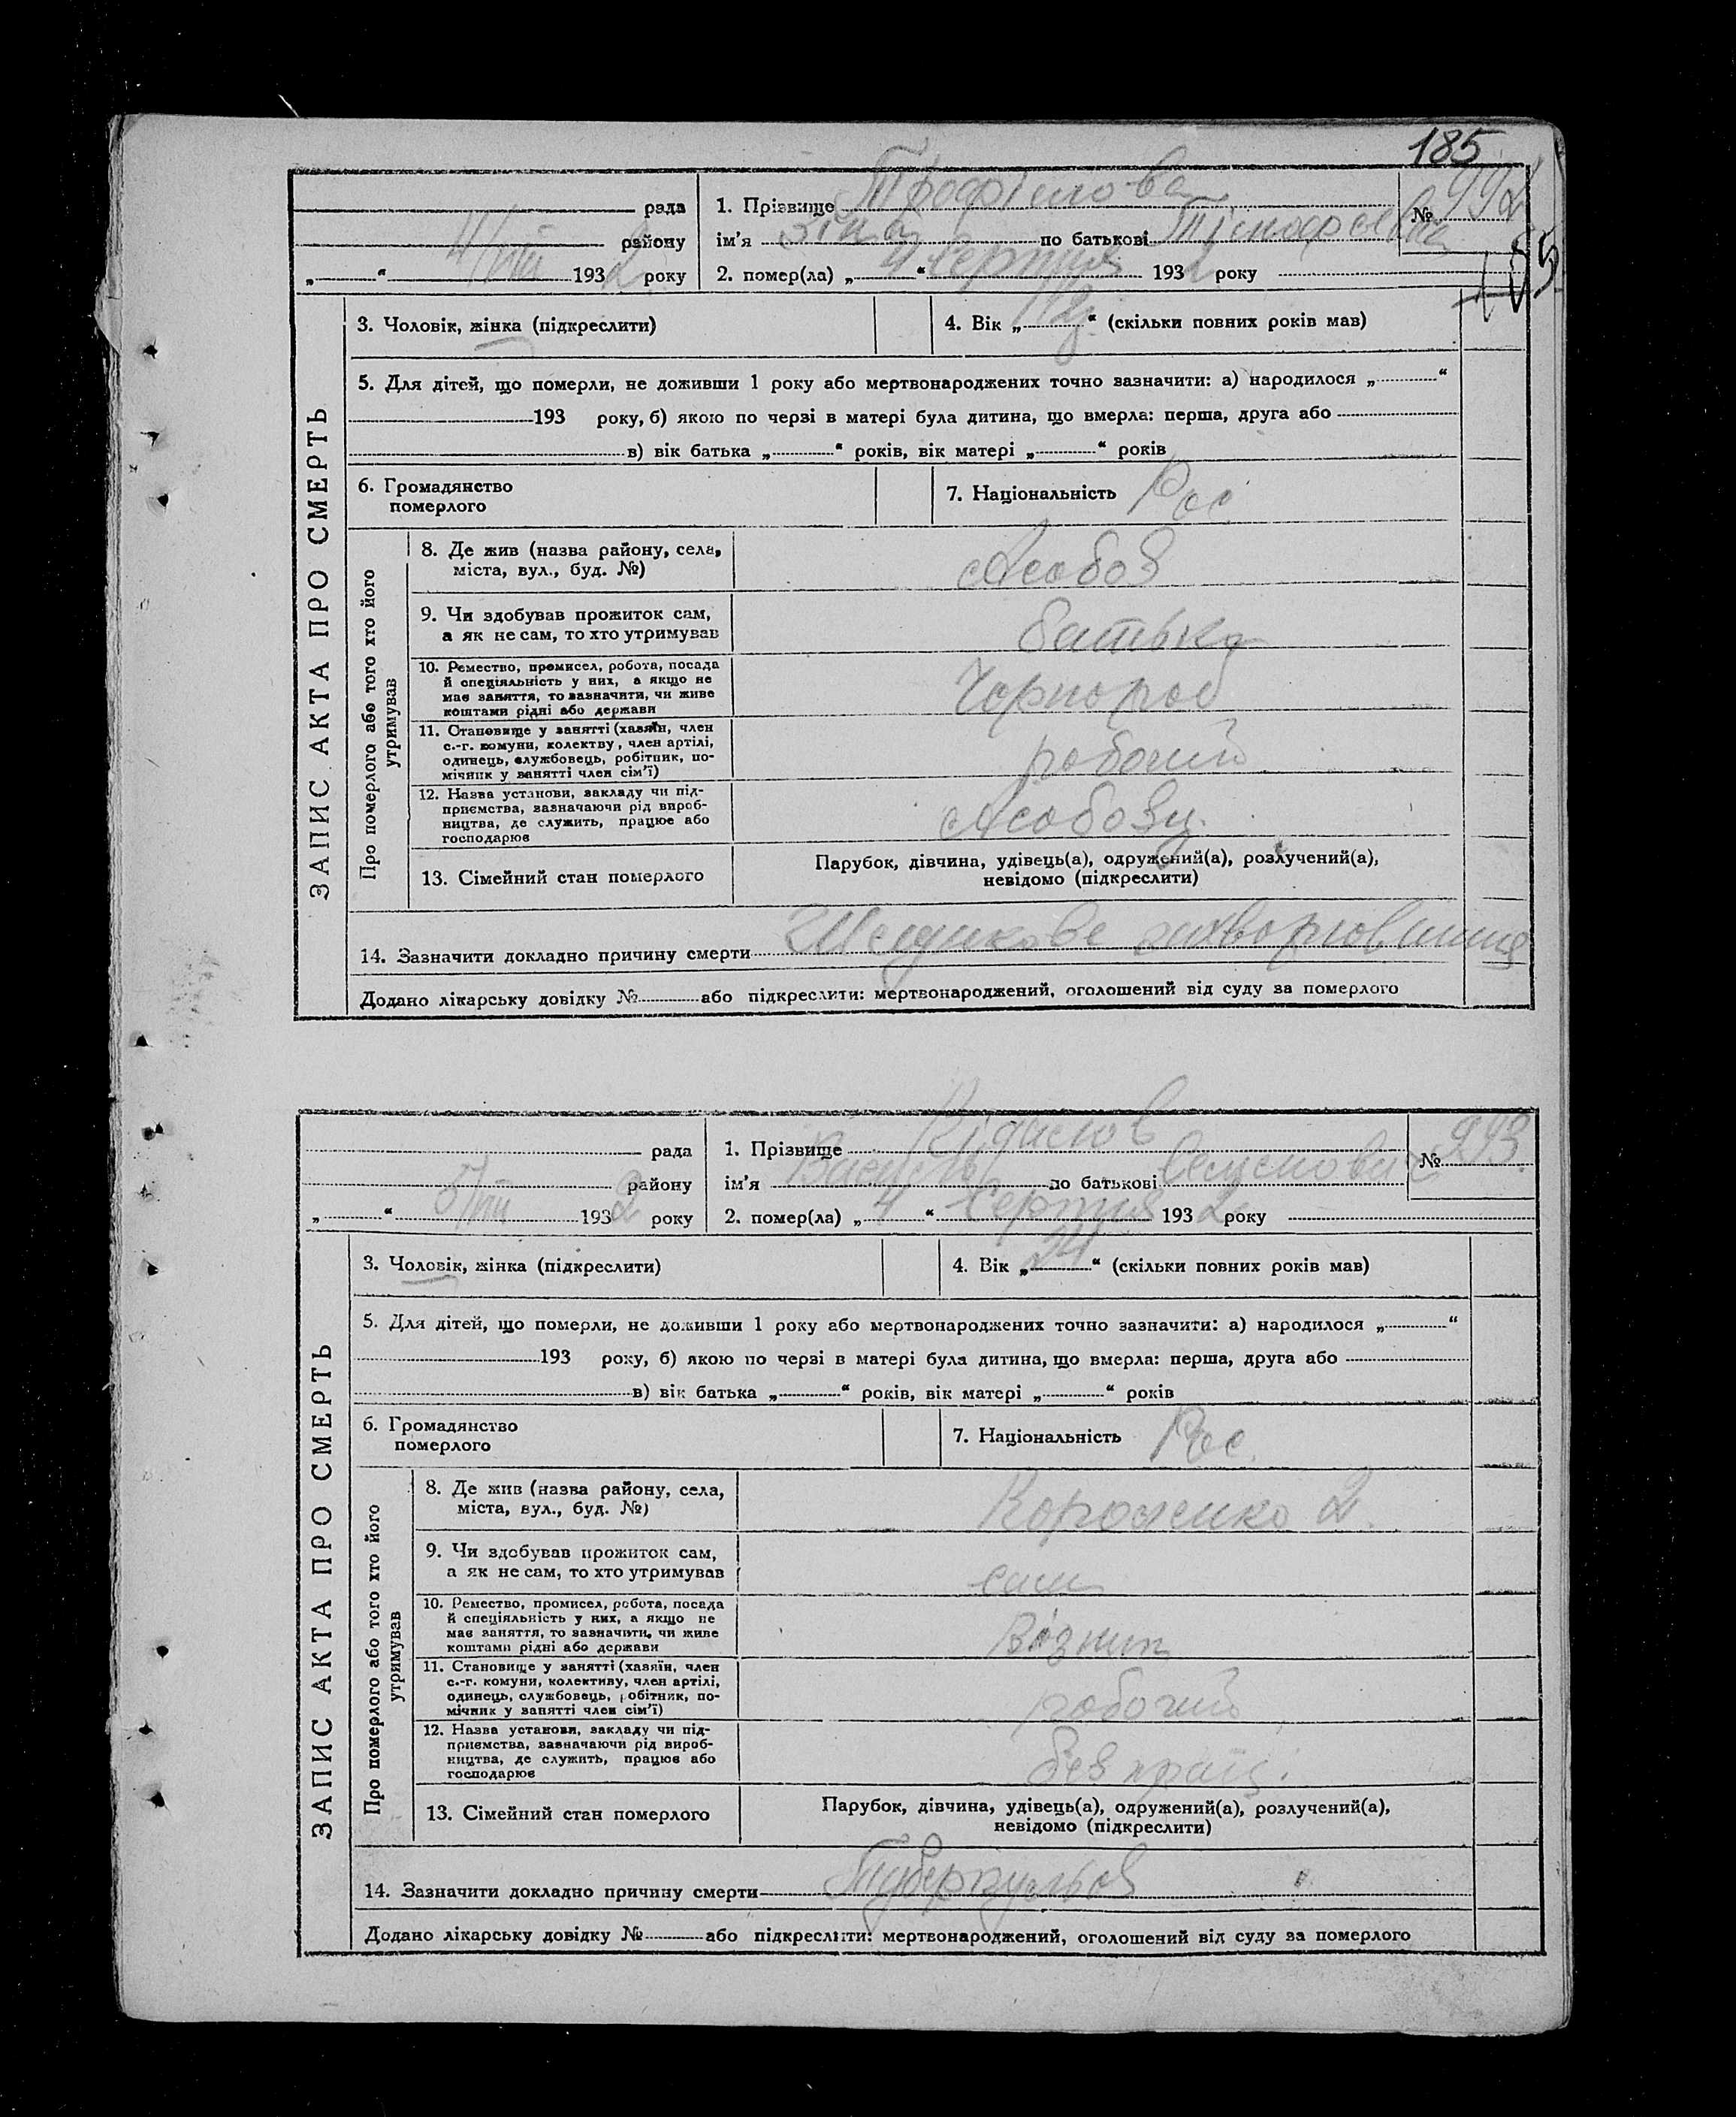 185
рада 1. Прізвище Трофімова № 992
району ім'я Зіна по батькові Тімофеевна
„ “ 4/VIII 1932 року 2. помер(ла) „4“ Серпня 1932 року
185
ЗАПИС АКТА ПРО СМЕРТЬ
3. Чоловік, жінка (підкреслити) 4. Вік „ “ (скільки повних років мав)
5. Для дітей, що померли, не доживши 1 року або мертвонароджених точно зазначити: а) народилося „ “
193 року, б) якою по черзі в матері була дитина, що вмерла: перша, друга або
в) вік батька „ “ років, вік матері „ “ років
6. Громадянство померлого 7. Національність Рос.
Про померлого або того хто його утримував
8. Де жив (назва району, села,
міста, вул., буд. №) Асобов
9. Чи здобував прожиток сам,
а як не сам, то хто утримував батько
10. Ремество, промисел, робота, посада
й спеціяльність у них, а якщо не
має заняття, то зазначити, чи живе
коштами рідні або держави Чорнороб
11. Становище у занятті (хазяїн, член
с.-г. комуни, колектву, член артілі,
одинець, службовець, робітник, по-
мічник у занятті член сім'ї) робочий
12. Назва установи, закладу чи під-
приємства, зазначаючи рід вироб-
ництва, де служить, працює або
господарює
13. Сімейний стан померлого Парубок, дівчина, удівець(а), одружений(а), розлучений(а),
невідомо (підкреслити)
14. Зазначити докладно причину смерти Шлункове захворювання
Додано лікарську довідку № або підкреслити: мертвонароджений, оголошений від суду за померлого
рада 1. Прізвище № 993.
району ім'я Василь по батькові
„ “ 5/VIII 1932 року 2. помер(ла) „4“ Серпня 1932 року
ЗАПИС АКТА ПРО СМЕРТЬ
3. Чоловік, жінка (підкреслити) 4. Вік „24“ (скільки повних років мав)
5. Для дітей, що померли, не доживши 1 року або мертвонароджених точно зазначити: а) народилося „ “
193 року, б) якою по черзі в матері була дитина, що вмерла: перша, друга або
в) вік батька „ “ років, вік матері „ “ років
6. Громадянство померлого 7. Національність Рос.
Про померлого або того хто його утримував
8. Де жив (назва району, села,
міста, вул., буд. №) Короленко 2.
9. Чи здобував прожиток сам,
а як не сам, то хто утримував сам
10. Ремество, промисел, робота, посада
й спеціяльність у них, а якщо не
має заняття, то зазначити, чи живе
коштами рідні або держави Візник
11. Становище у занятті (хазяїн, член
с.-г. комуни, колективу, член артілі,
одинець, службовець, робітник, по-
мічник у занятті член сім'ї) робочий
12. Назва установи, закладу чи під-
приємства, зазначаючи рід вироб-
ництва, де служить, працює або
господарює без праці.
13. Сімейний стан померлого Парубок, дівчина, удівець(а), одружений(а), розлучений(а),
невідомо (підкреслити)
14. Зазначити докладно причину смерти Туберкульоз
Додано лікарську довідку № або підкреслити: мертвонароджений, оголошений від суду за померлого